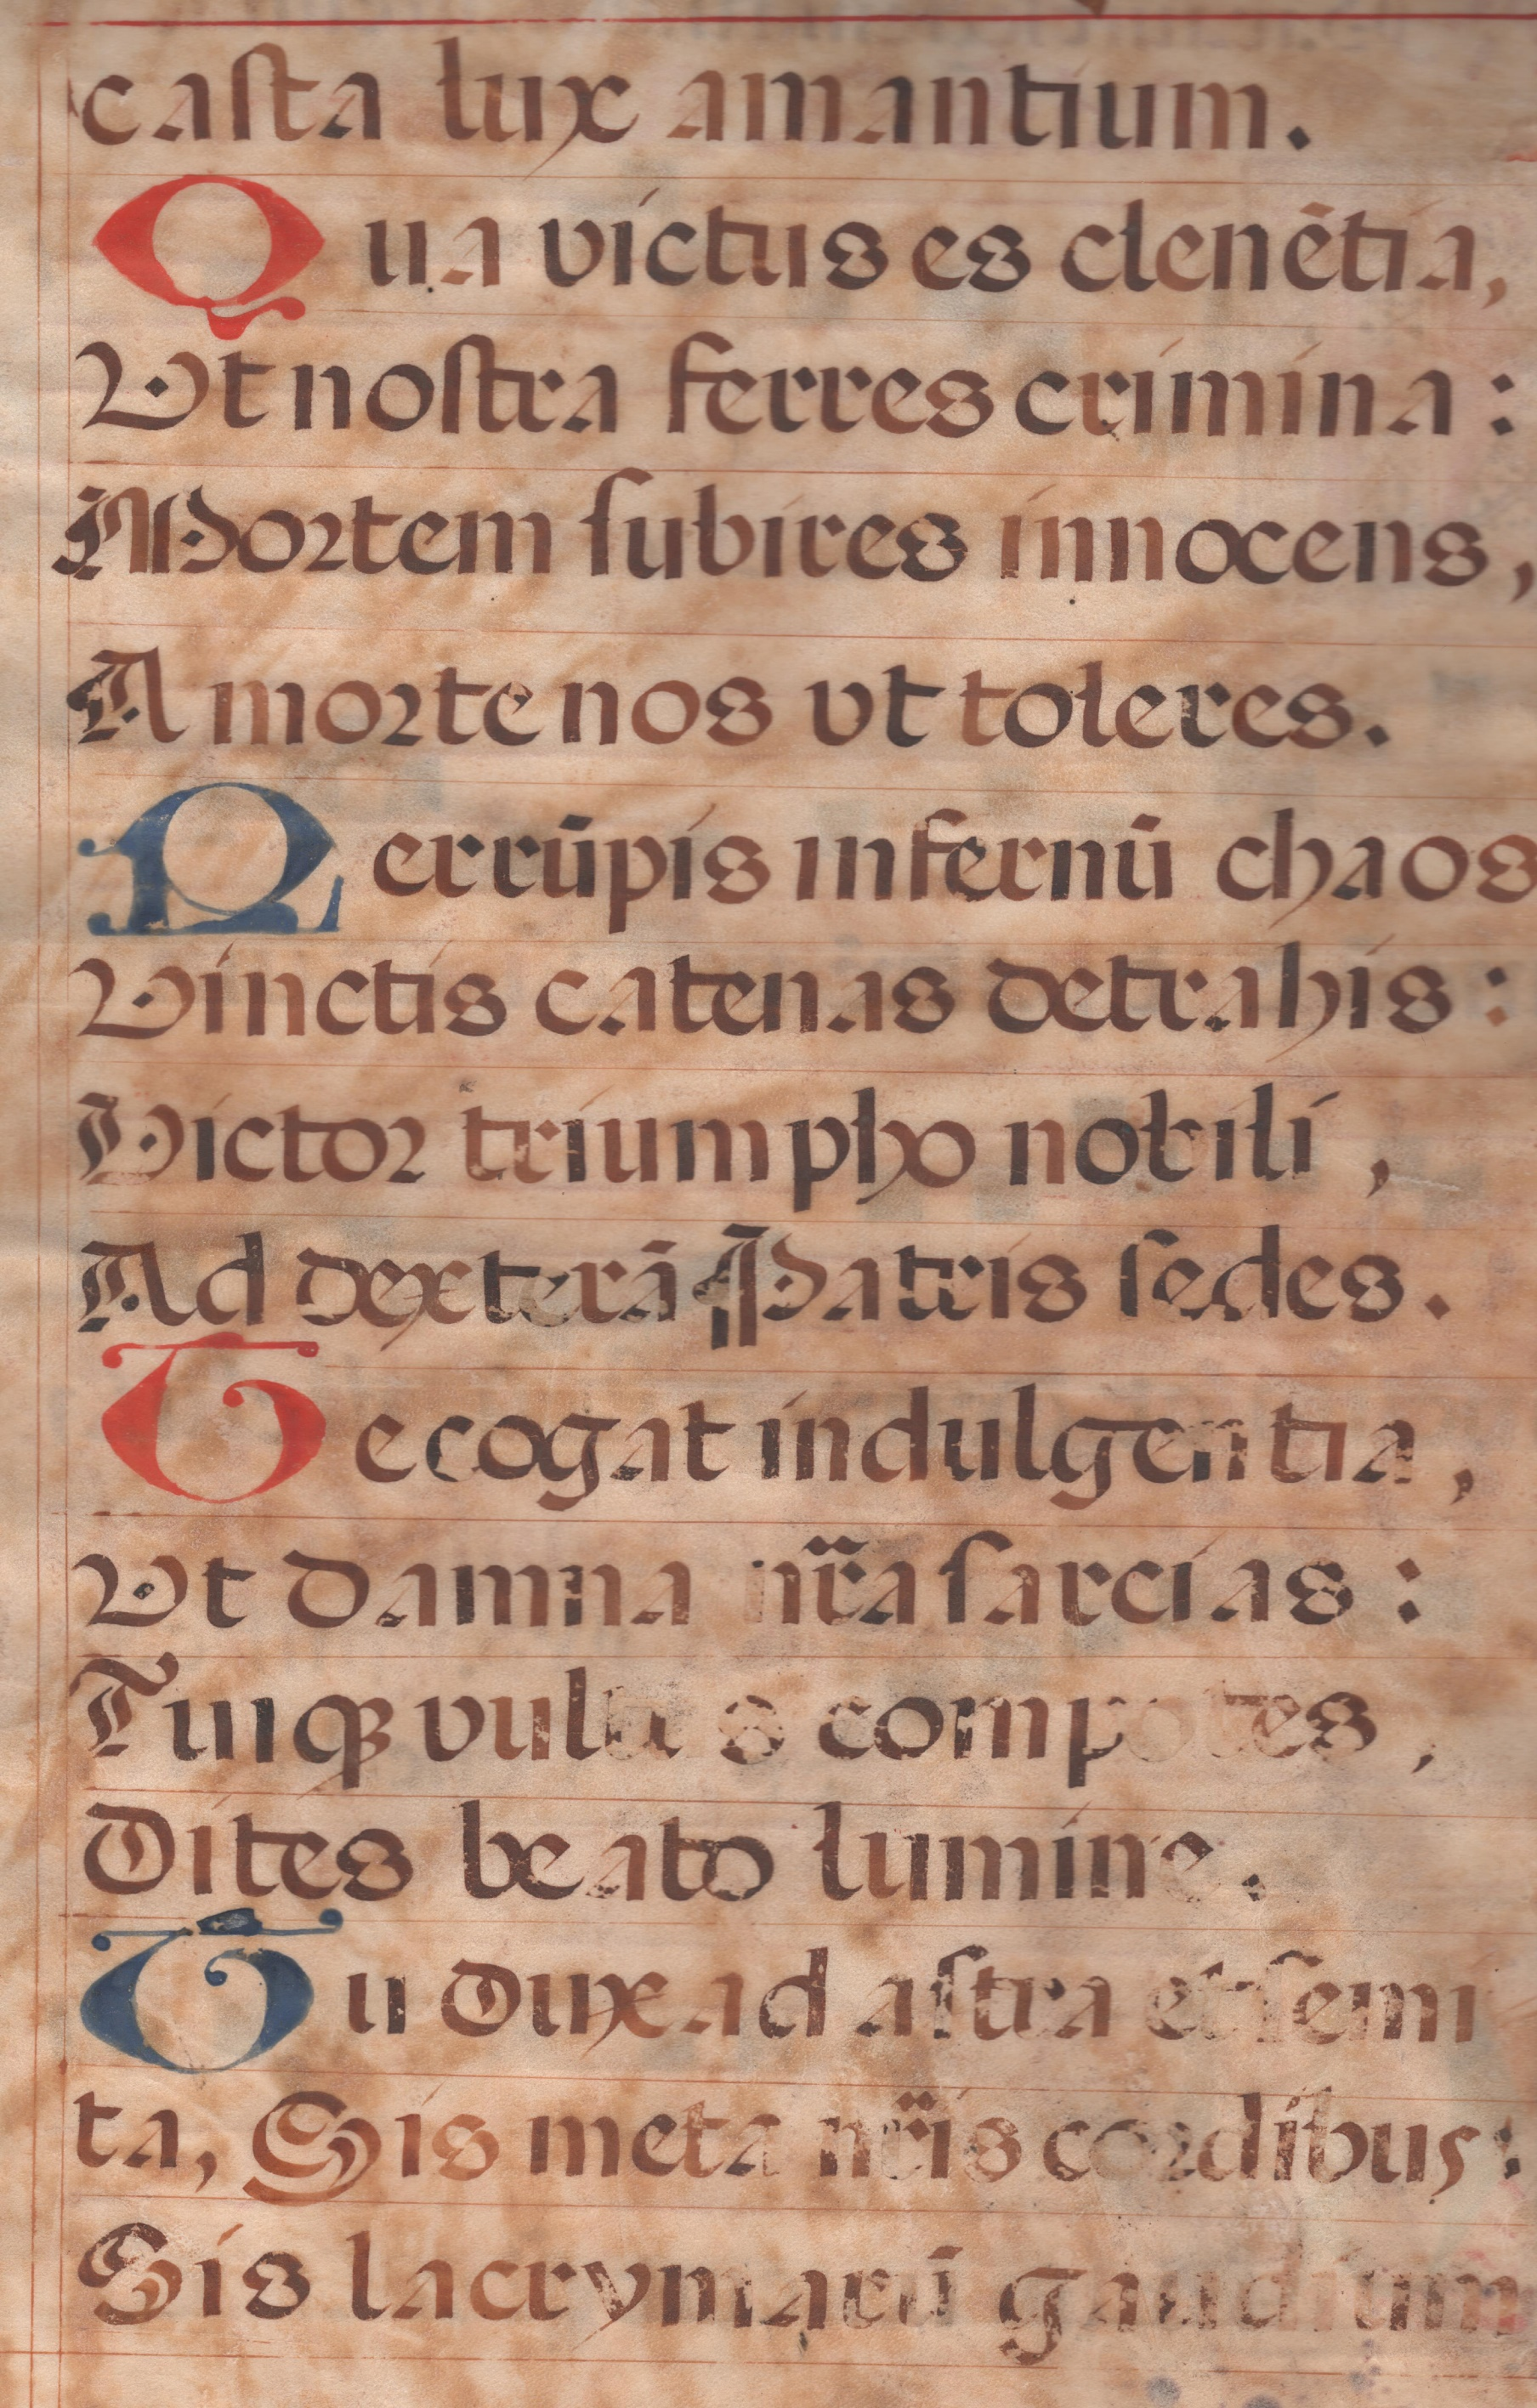 casta lux amantium.
Qua victus es clenētia,
Vt nostra ferres crimina :
Mortem subires innocens,
A morte nos vt toleres.
Perrūpis infernū chaos
Vinctis catenas detrahis :
Victor triumpho nobili ,
Ad dexterā Patris sedes.
Te cogat indulgentia ,
Vt damna nr̄a sarcias :
Tuiqꝫ vultus compotes ,
Dites beato lumine.
Tu dux ad astra et semi
ta, Sis meta nr̄is cordibus :
Sis lacrymarū gaudium